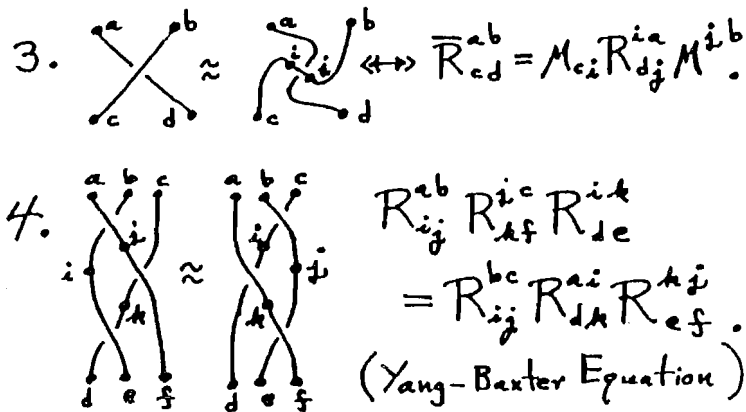 3. a b c d ≈ a b i j c d ↔ R̅^{ab}_{cd} = M_{ci} R^{ia}_{dj} M^{jb}.
4. a b c i j k d e f ≈ a b c i j k d e f R^{ab}_{ij} R^{jc}_{kf} R^{ik}_{de}
= R^{bc}_{ij} R^{ai}_{dk} R^{kj}_{ef}.
(Yang-Baxter Equation)